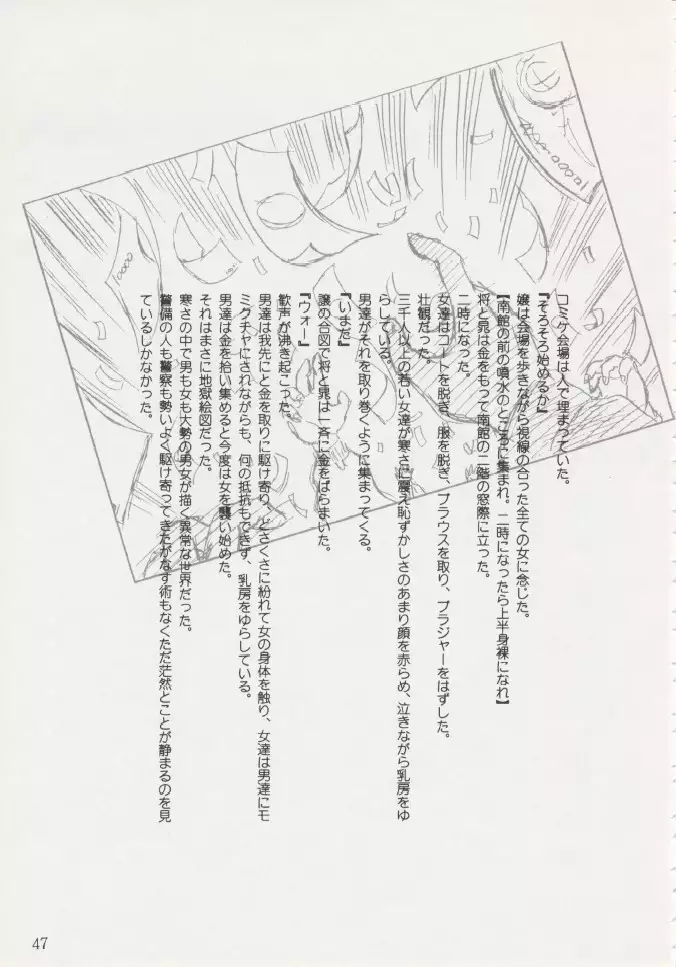 コミケ会場は人で埋まっていた。
『そろそろ始めるか』
嬢は会場を歩きながら視線の合った全ての女に念じた。
【南館の前の噴水のところに集まれ。二時になったら上半身裸になれ】
将と晁は金をもって南館の二階の窓際に立った。
二時になった。
女達はコートを脱ぎ、服を脱ぎ、ブラウスを取り、ブラジャーをはずした。
壮観だった。
三千人以上の若い女達が寒さに震え恥ずかしさのあまり顔を赤らめ、泣きながら乳房をゆ
らしている。
男達がそれを取り巻くように集まってくる。
『いまだ』
譲の合図で将と晁は一斉に金をばらまいた。
『ウォー』
歓声が沸き起こった。
男達は我先にと金を取りに駆け寄り、どさくさに紛れて女の身体を触り、女達は男達にモ
ミクチャにされながらも、何の抵抗もできず、乳房をゆらしている。
男達は金を拾い集めると今度は女を襲い始めた。
それはまさに地獄絵図だった。
寒さの中で男も女も大勢の男女が描く異常な世界だった。
警備の人も警察も勢いよく駆け寄ってきたがなす術もなくただ茫然とことが静まるのを見
ているしかなかった。
10000
47